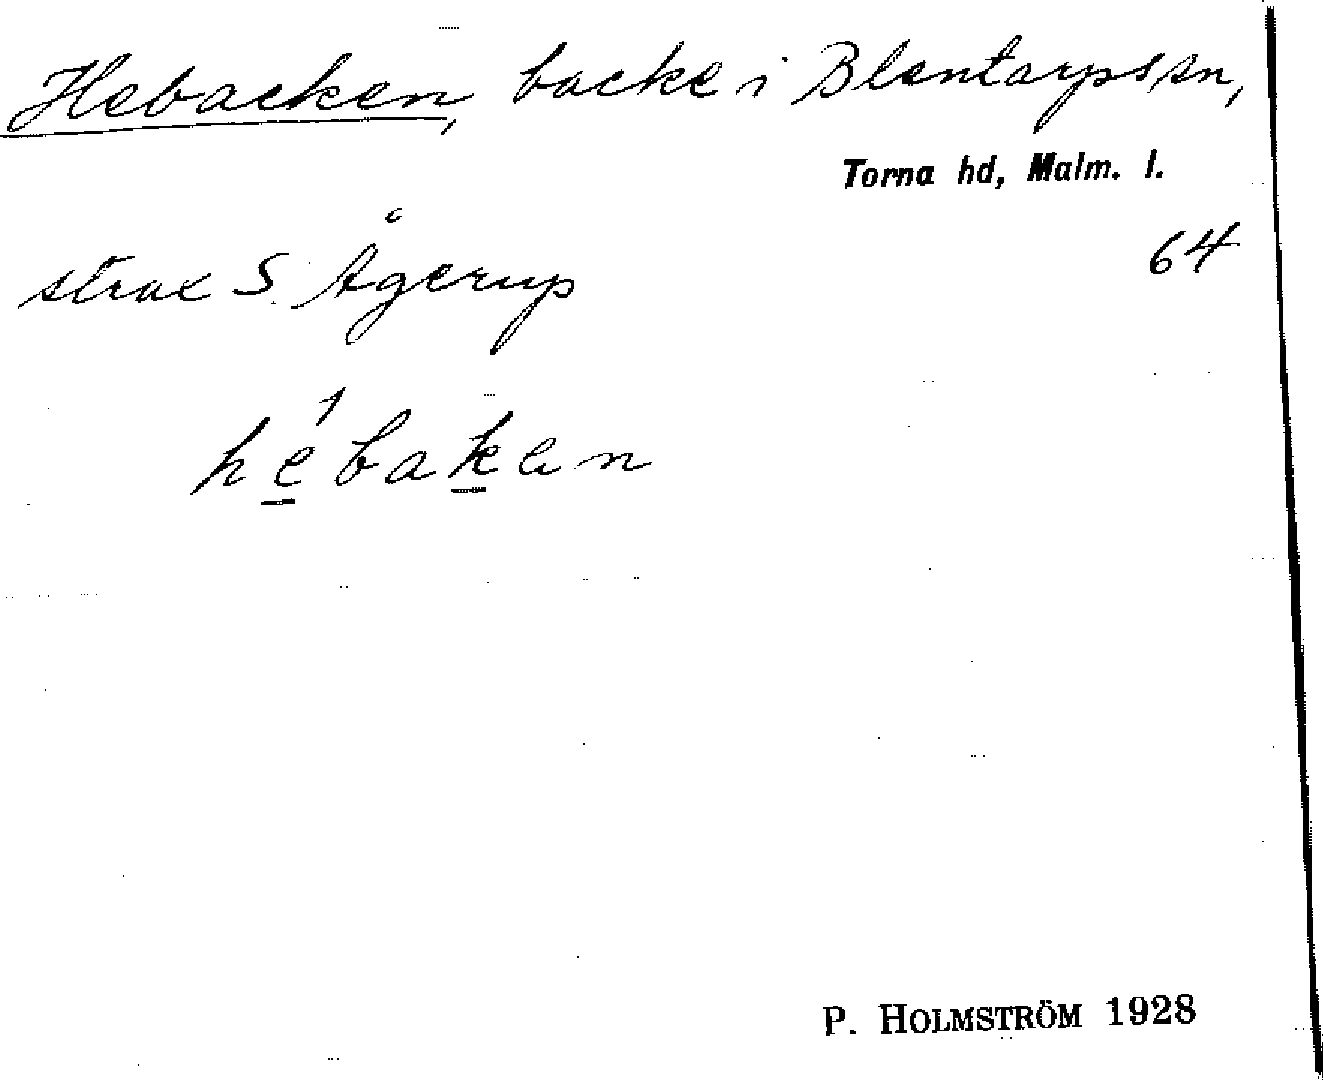 Hebacken, backe i Blentarps sn,
Torna hd, Malm. l.
strax S. Ågerup
64
hébaken
P. HOLMSTRÖM 1928